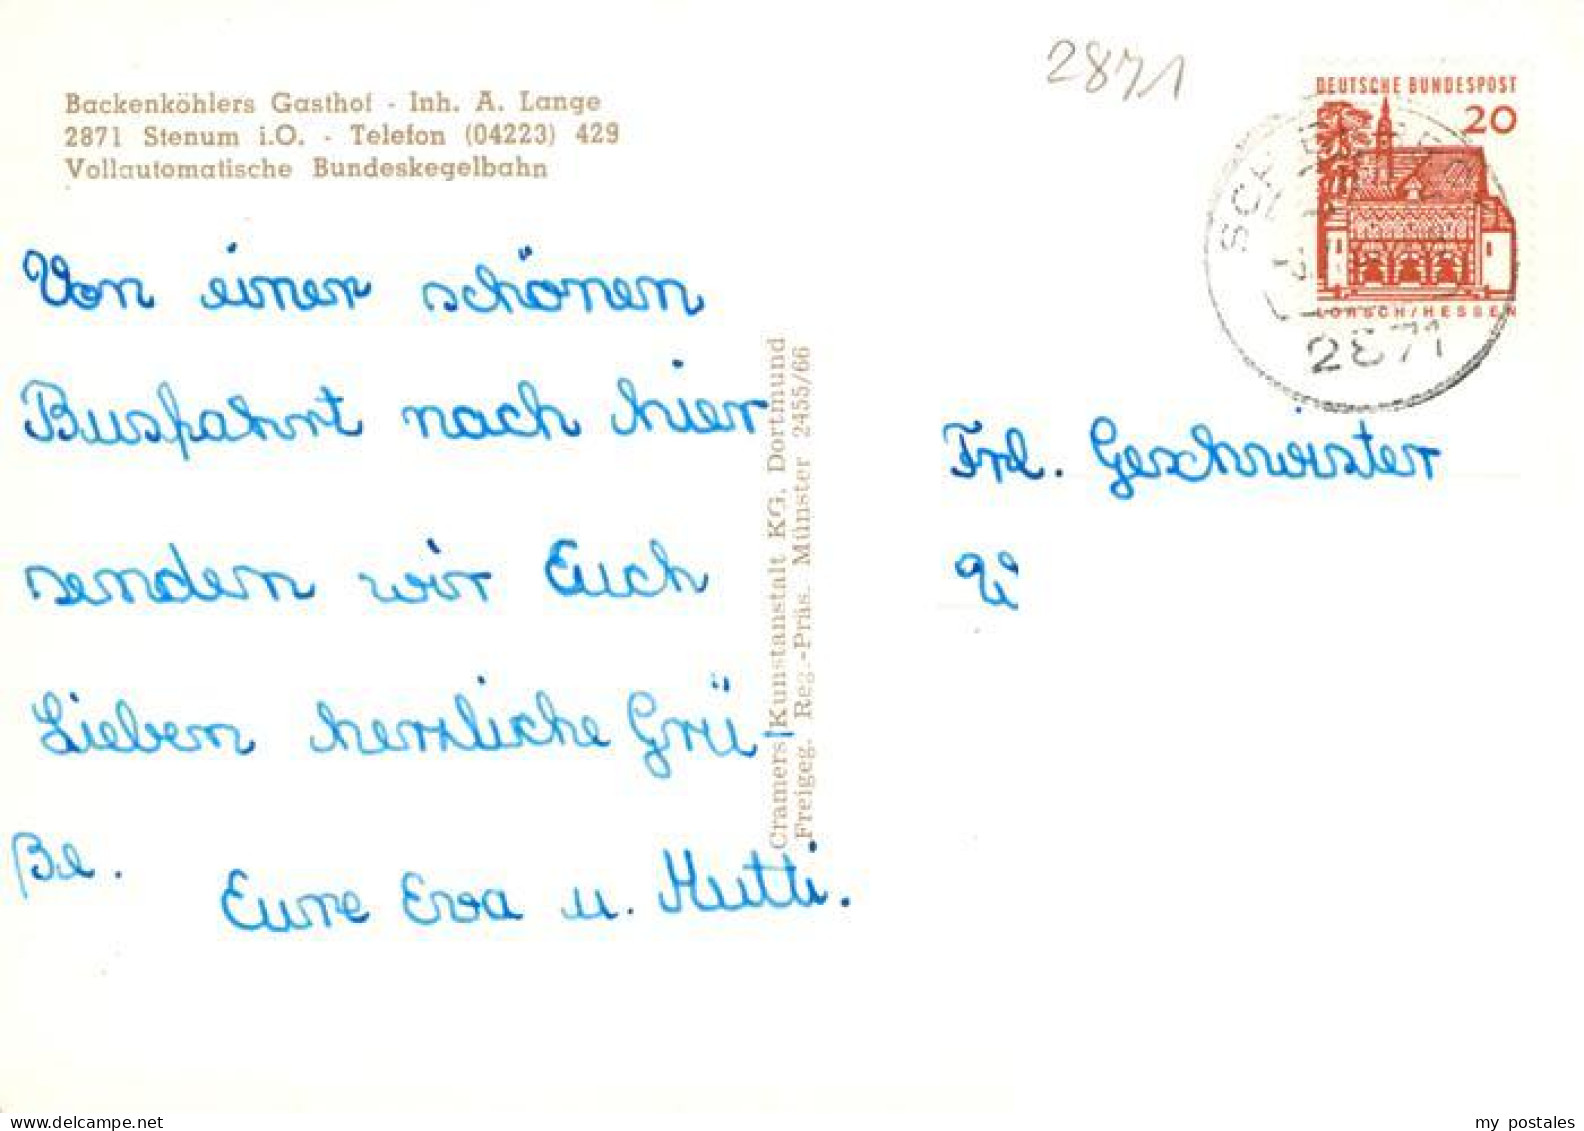 Backenköhlers Gasthof - Inh. A. Lange
2871 Stenum i.O. - Telefon (04223) 429
Vollautomatische Bundeskegelbahn
2871
DEUTSCHE BUNDESPOST
20
LORSCH/HESSEN
2871
Von einer schönen
Busfahrt nach hier
senden wir Euch
Lieben herzliche Grü-
ße.
Eure Eva u. Mutti.
Cramers Kunstanstalt KG, Dortmund
Freigeg. Reg.-Präs. Münster 2455/66
Frl. Geschwister
my postales